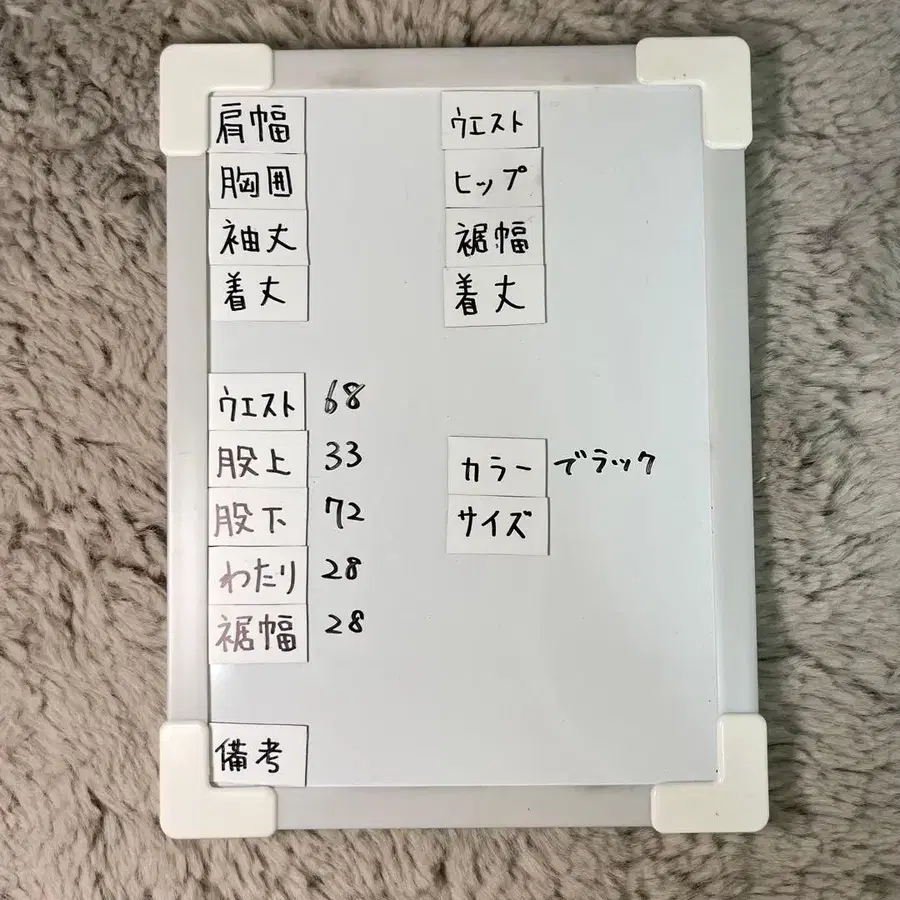 肩幅
胸囲
袖丈
着丈
ウエスト
ヒップ
裾幅
着丈
ウエスト 68
股上 33
股下 72
わたり 28
裾幅 28
カラー ブラック
サイズ
備考